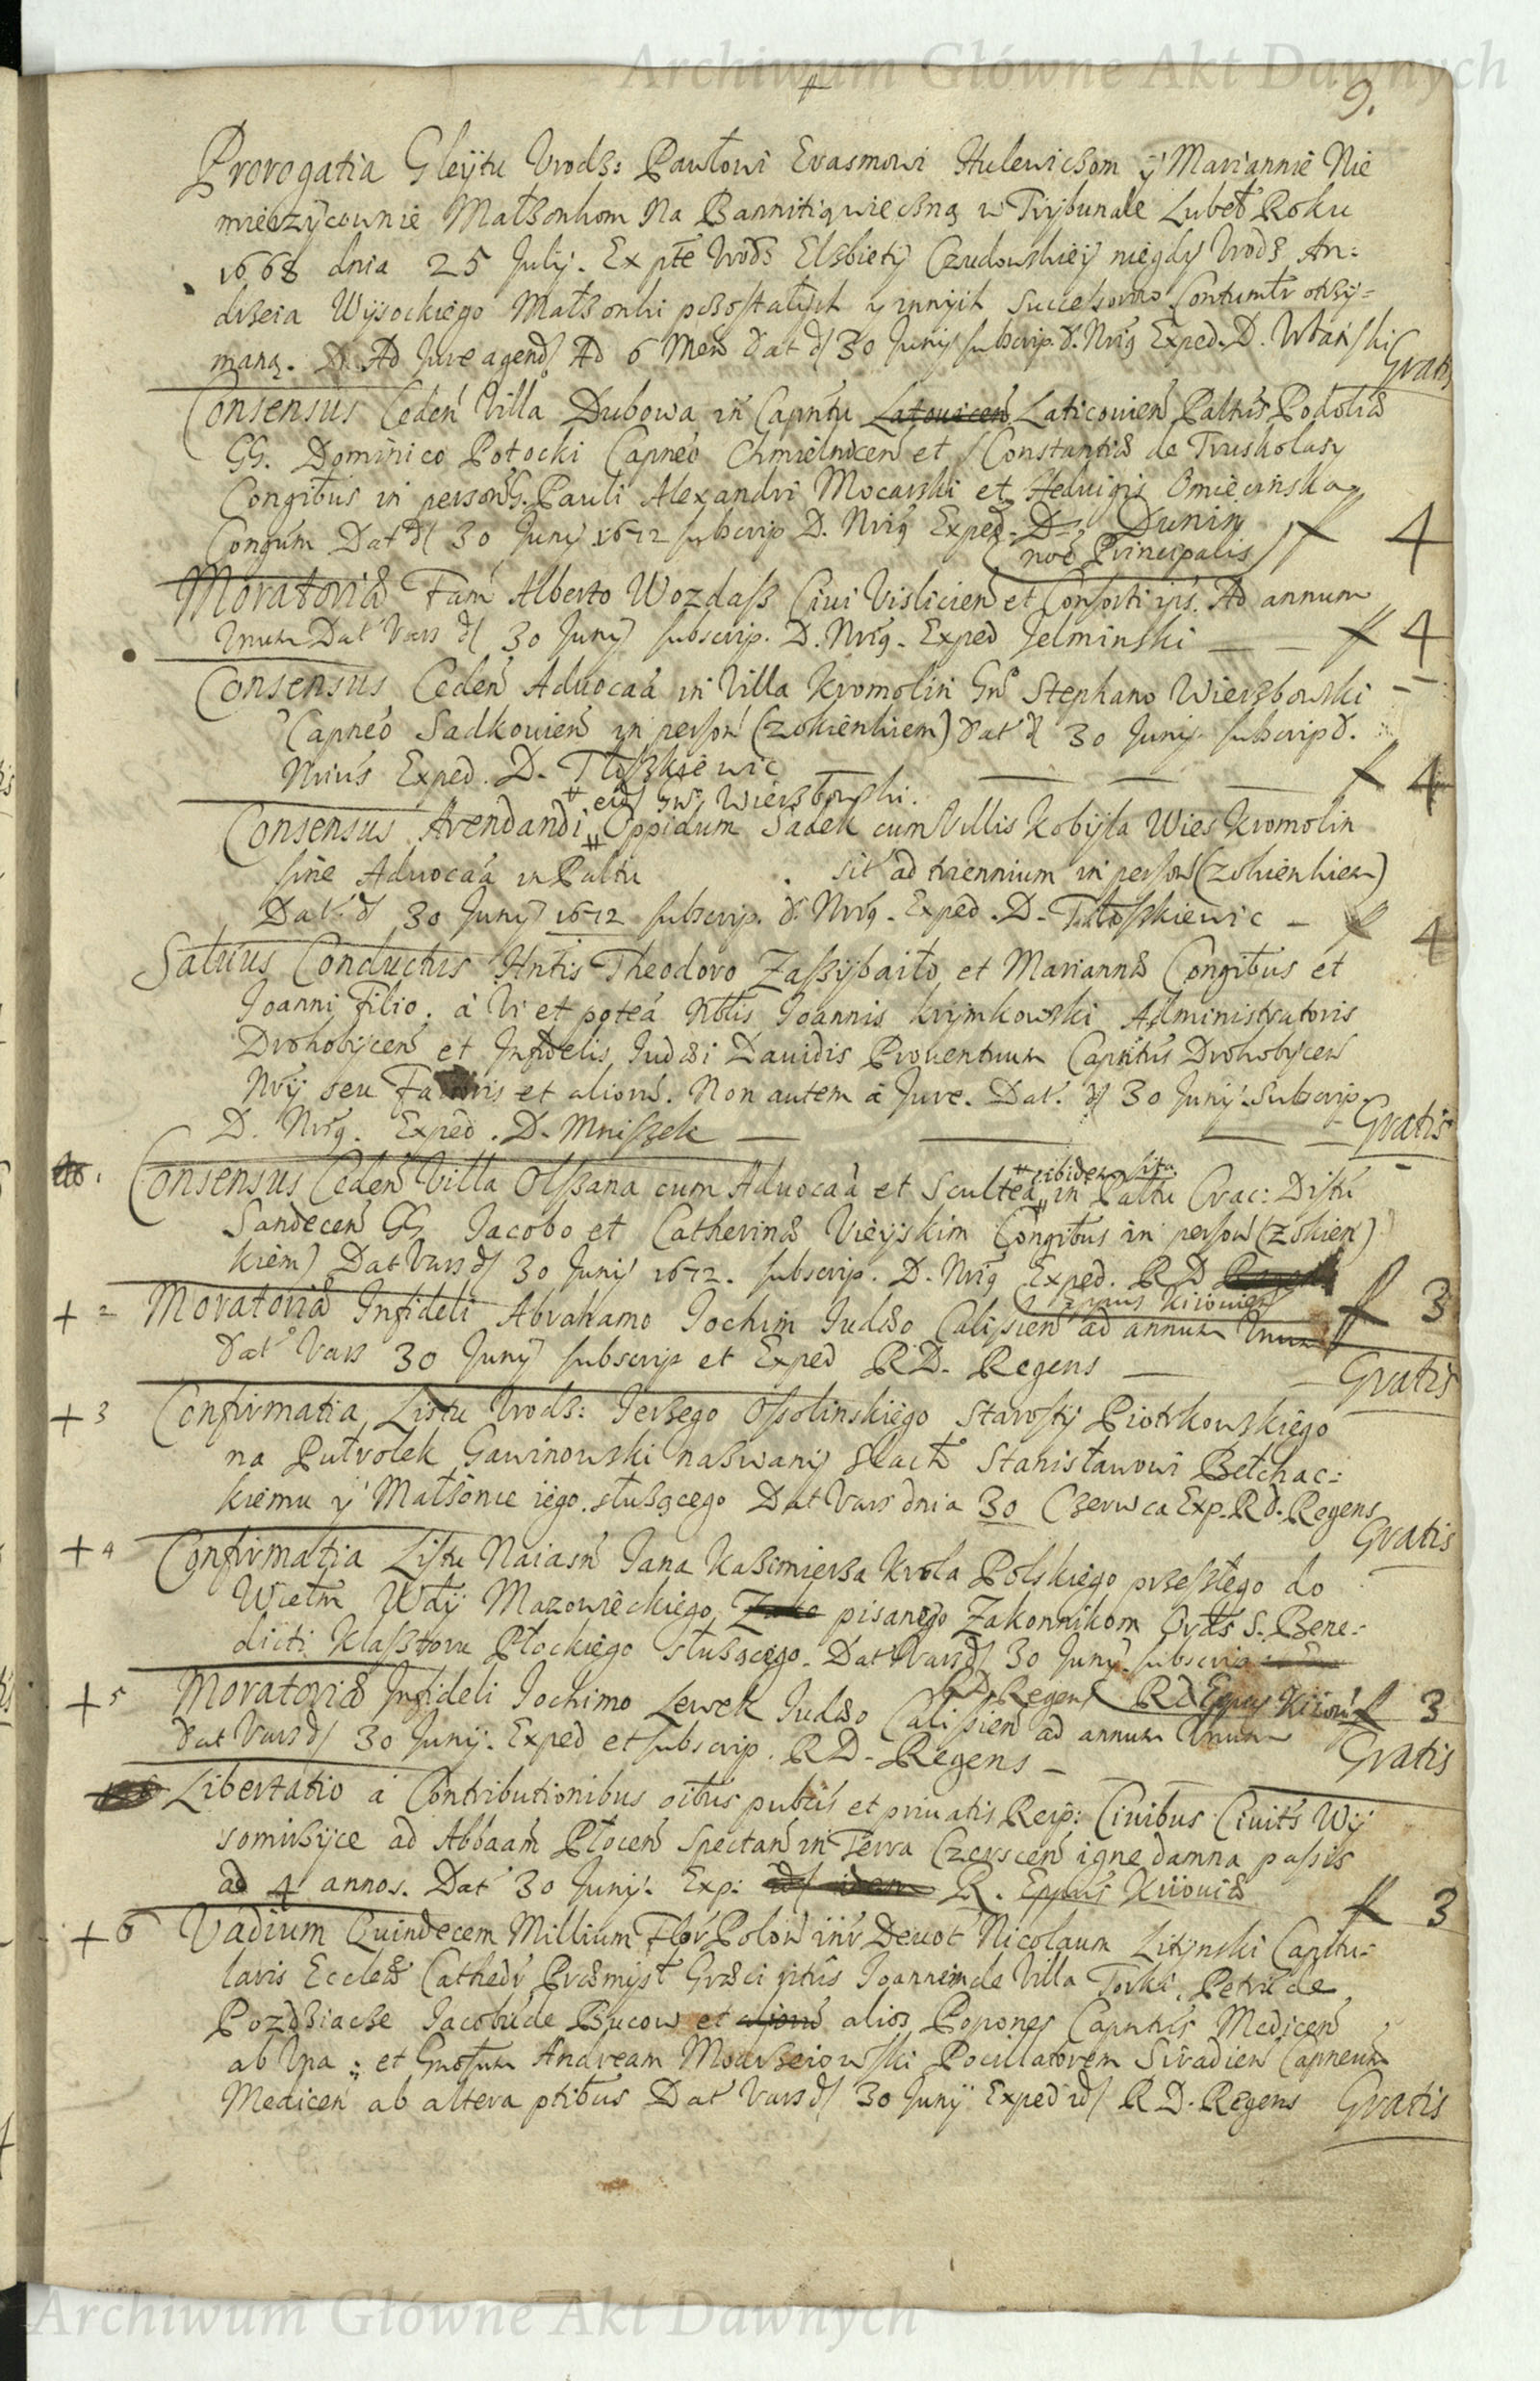 Archiwum Główne Akt Dawnych
9.
Prorogatia Gleÿtu Vrodz: Pawłowi Erasmowi Hulewiczom ÿ Mariannie Nie
mierzÿcownie Małżonkom Na Bannitią wieczną w Trÿbunale Lubel Roku
1668 dnia 25 Julÿ. Ex pte Vrodz Elzbietÿ Czudowskieÿ niegdy Vrodz An:
drzeia Wÿsockiego Małżonki pozostałÿch y innÿch Successorow Contumtr otrzÿ=
maną. Ad Jure agend Ad 6 Men Dat d 30 Junÿ subscrip. D. Nrig Exped. D. Wtański
Gratis
Consensus Ceden Villa Dubowa in Capntu Latouicen Laticouien Paltus Podoliæ
GG. Dominico Potocki Capneo Chmielnicen et Constantiæ de Truskolasy
Congibus in person G. Pauli Alexandri Mocarski et Heduigis Omiecinska
Congum Dat d 30 Junÿ 1672 subscrip D. Nrig Exped. D. Dunin
noe Principalis
f 4
Moratoriæ Fam Alberto Wozdasz Ciui Vislicien et Consorti ips. Ad annum
Vnum Dat Vars d 30 Junÿ subscrip. D. Nrig. Exped Jelminski — — f 4
Consensus Ceden Aduocaa in Villa Kromolin Gn Stephano Wierzbowski
Capneo Sadkouien in person (zokienkiem) Dat d 30 Junÿ subscrip D.
Nrius Exped. D. Tłoszkiewic — — — f 4
eid Gn Wierzbowski.
Consensus Arendandi Oppidum Sadek cum Villis Kobÿla Wies Kromolin
sine Aduocaa in Paltu . sit ad triennium in person (zokienkiem)
Dat. d 30 Junÿ 1672 subscrip. D. Nrig. Exped. D. Tłoszkiewic — f 4
Saluus Conductus Hntis Theodoro Zaszÿbaito et Mariannæ Congibus et
Joanni Filio. a Vi et potea Nblis Joannis Krÿmkowski Administratoris
Drohobÿcen et Infidelis Judæi Dauidis Prouentuum Capntus Drohobÿcen
Nrÿ seu Fa et aliorum. Non autem a Jure. Dat. d 30 Junÿ. Subscrip.
D. Nrig. Exped. D. Mniszek — — — Gratis
ibidem sita
Consensus Ceden Villa Olszana cum Aduocaa et Scultea in Paltu Crac: Distu
Sandecen GG Jacobo et Catherinæ Vieÿskim Congibus in person (zokien)
kiem) Dat Vars d 30 Junÿ 1672. subscrip. D. Nrig Exped. RD
Eppus Kiiouien
f 3
+ 2 Moratoriæ Infideli Abrahamo Jochim Judæo Calissien ad annum Vnum
Dat Vars 30 Junÿ subscrip et Exped RD. Regens — — Gratis
+ 3 Confirmatia Listu Vrodz: Jerzego Ossolinskiego Starostÿ Piotrkowskiego
na Putrolek Gawinowski nazwanÿ Stanisławowi Bełchac:
kiemu ÿ Małżonce iego słuzącego Dat Vars dnia 30 Czerwca Exp. RD. Regens
Gratis
+ 4 Confirmatia Listu Naiasn Jana Kazimierza Krola Polskiego przeszłego do
Wielm Wdÿ Mazowieckiego pisanego Zakonnikom Ordis S. Bene:
dicti Klasztoru Płockiego słuzącego. Dat Vars d 30 Junÿ subscrip
RD Regens RD Eppus Kiiou f 3
+ 5 Moratoriæ Infideli Jochimo Lewek Judæo Calissien ad annum Vnum
Dat Vars d 30 Junÿ. Exped et subscrip. RD. Regens — Gratis
Libertatio a Contributionibus oibus publis et priuatis Reip: Ciuibus Ciuits Wÿ
somirzÿce ad Abbaam Płocen Spectan in Terra Czerscen igne damna passis
ad 4 annos. Dat 30 Junÿ. Exp: R. Eppus Kiiouiæ f 3
+ 6 Vadium Quindecem Millium Flor Polon inr Deuot Nicolaum Litÿnski Capitu=
laris Eccleæ Cathedr Præmysl Græci ritus Joannem de Villa Torki, Petru de
Pozdziacze Jacobu de Bucow et alios Popones Capntus Medicen
ab Vna: et Gnosum Andream Modrzeiowski Pocillatorem Siradien Capneum
Medicen ab altera ptibus Dat Vars d 30 Junÿ Exped id RD. Regens Gratis
Archiwum Główne Akt Dawnych